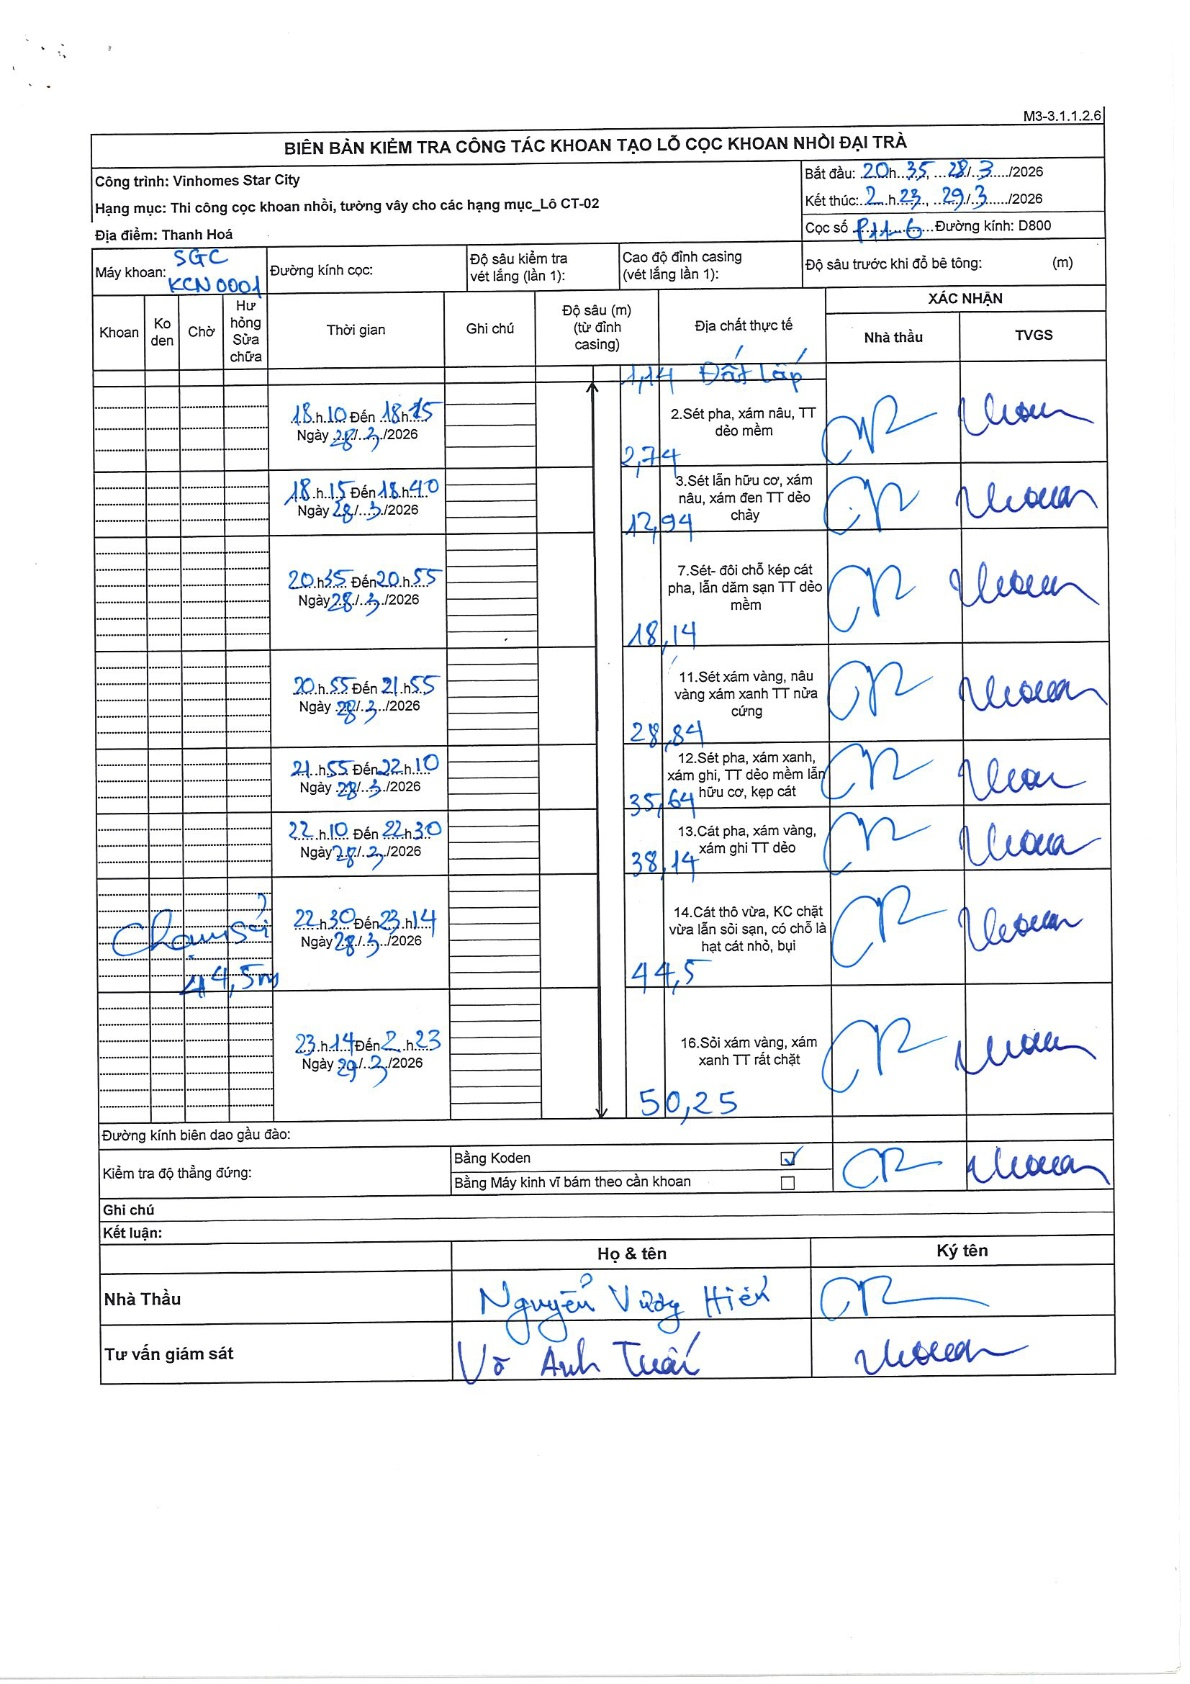 M3-3.1.1.2.6
BIÊN BẢN KIỂM TRA CÔNG TÁC KHOAN TẠO LỖ CỌC KHOAN NHỒI ĐẠI TRÀ
Công trình: Vinhomes Star City
Hạng mục: Thi công cọc khoan nhồi, tường vây cho các hạng mục_Lô CT-02
Địa điểm: Thanh Hoá
Bắt đầu: 20h 35, 28/3/2026
Kết thúc: 2 h 23, 29/3/2026
Cọc số P11-6 Đường kính: D800
Máy khoan: SGC KCN0001
Đường kính cọc:
Độ sâu kiểm tra vét lắng (lần 1):
Cao độ đỉnh casing (vét lắng lần 1):
Độ sâu trước khi đổ bê tông: (m)
Khoan
Ko den
Chờ
Hư hỏng Sửa chữa
Thời gian
Ghi chú
Độ sâu (m) (từ đỉnh casing)
Địa chất thực tế
XÁC NHẬN
Nhà thầu
TVGS
1,14 Đất lấp
18.h.10 Đến 18h15
Ngày 28/3/2026
2.Sét pha, xám nâu, TT dẻo mềm
2,74
18.h.15 Đến 18h40
Ngày 28/3/2026
3.Sét lẫn hữu cơ, xám nâu, xám đen TT dẻo chảy
12,94
20.h35 Đến 20h55
Ngày 28/3/2026
7.Sét- đôi chỗ kép cát pha, lẫn dăm sạn TT dẻo mềm
18,14
20.h.55 Đến 21.h55
Ngày 28/3/2026
11.Sét xám vàng, nâu vàng xám xanh TT nửa cứng
28,84
21.h55 Đến 22h10
Ngày 28/3/2026
12.Sét pha, xám xanh, xám ghi, TT dẻo mềm lẫn hữu cơ, kẹp cát
35,64
22.h10 Đến 22h30
Ngày 28/3/2026
13.Cát pha, xám vàng, xám ghi TT dẻo
38,14
Chạm sỏi
44,5m
22.h30 Đến 23h14
Ngày 28/3/2026
14.Cát thô vừa, KC chặt vừa lẫn sỏi sạn, có chỗ là hạt cát nhỏ, bụi
44,5
23.h14 Đến 2.h.23
Ngày 29/3/2026
16.Sỏi xám vàng, xám xanh TT rất chặt
50,25
Đường kính biên dao gầu đào:
Kiểm tra độ thẳng đứng:
Bằng Koden
Bằng Máy kinh vĩ bám theo cần khoan
Ghi chú
Kết luận:
Họ & tên
Ký tên
Nhà Thầu
Nguyễn Hiến
Tư vấn giám sát
Võ Anh Tuấn